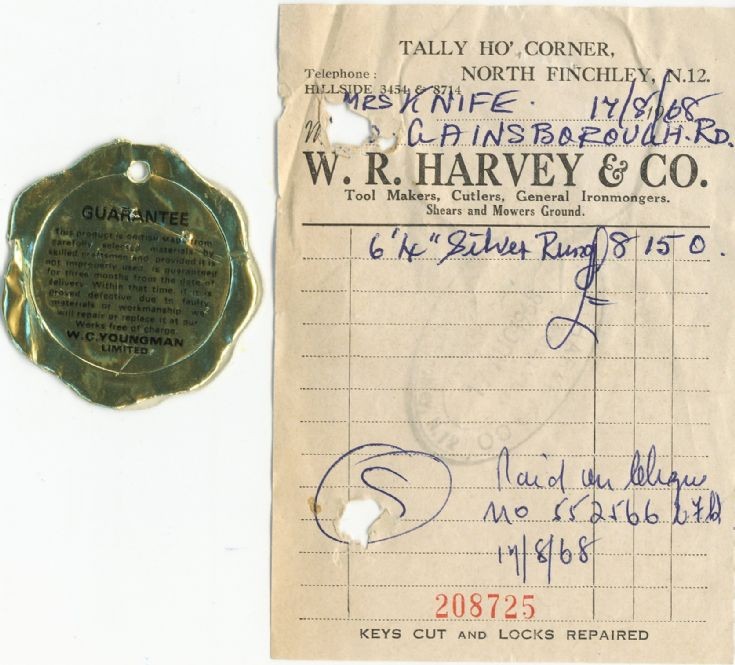 GUARANTEE
This product is British Made from
carefully selected materials by
skilled craftsmen and provided it is
not improperly used, is guaranteed
for three months from the date of
delivery. Within that time, if it is
proved defective due to faulty
materials or workmanship we
will repair or replace it at our
Works free of charge.
W.C. YOUNGMAN
LIMITED
TALLY HO' CORNER,
NORTH FINCHLEY, N.12.
Telephone:
HILLSIDE 3454 & 8714
MRS KNIFE. 17/8/68
GAINSBOROUGH. RD.
W. R. HARVEY & CO.
Tool Makers, Cutlers, General Ironmongers.
Shears and Mowers Ground.
6'4" Silver Rung 8 15 0.
Paid on Cheque
no 552566
17/8/68
208725
KEYS CUT AND LOCKS REPAIRED